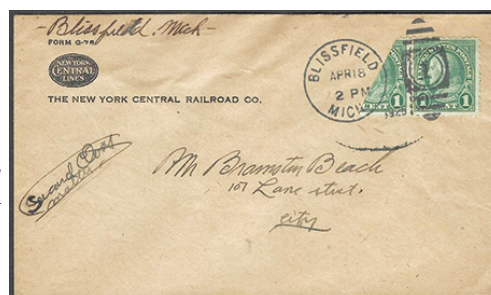 - Blissfield. Mich -
FORM G-78
NEW YORK
CENTRAL
LINES
THE NEW YORK CENTRAL RAILROAD CO.
BLISSFIELD
APR 18
2 PM
MICH
1
CENT
1
CENT
Second Class
matter
Mr Bramston Beach
107 Lane street.
City